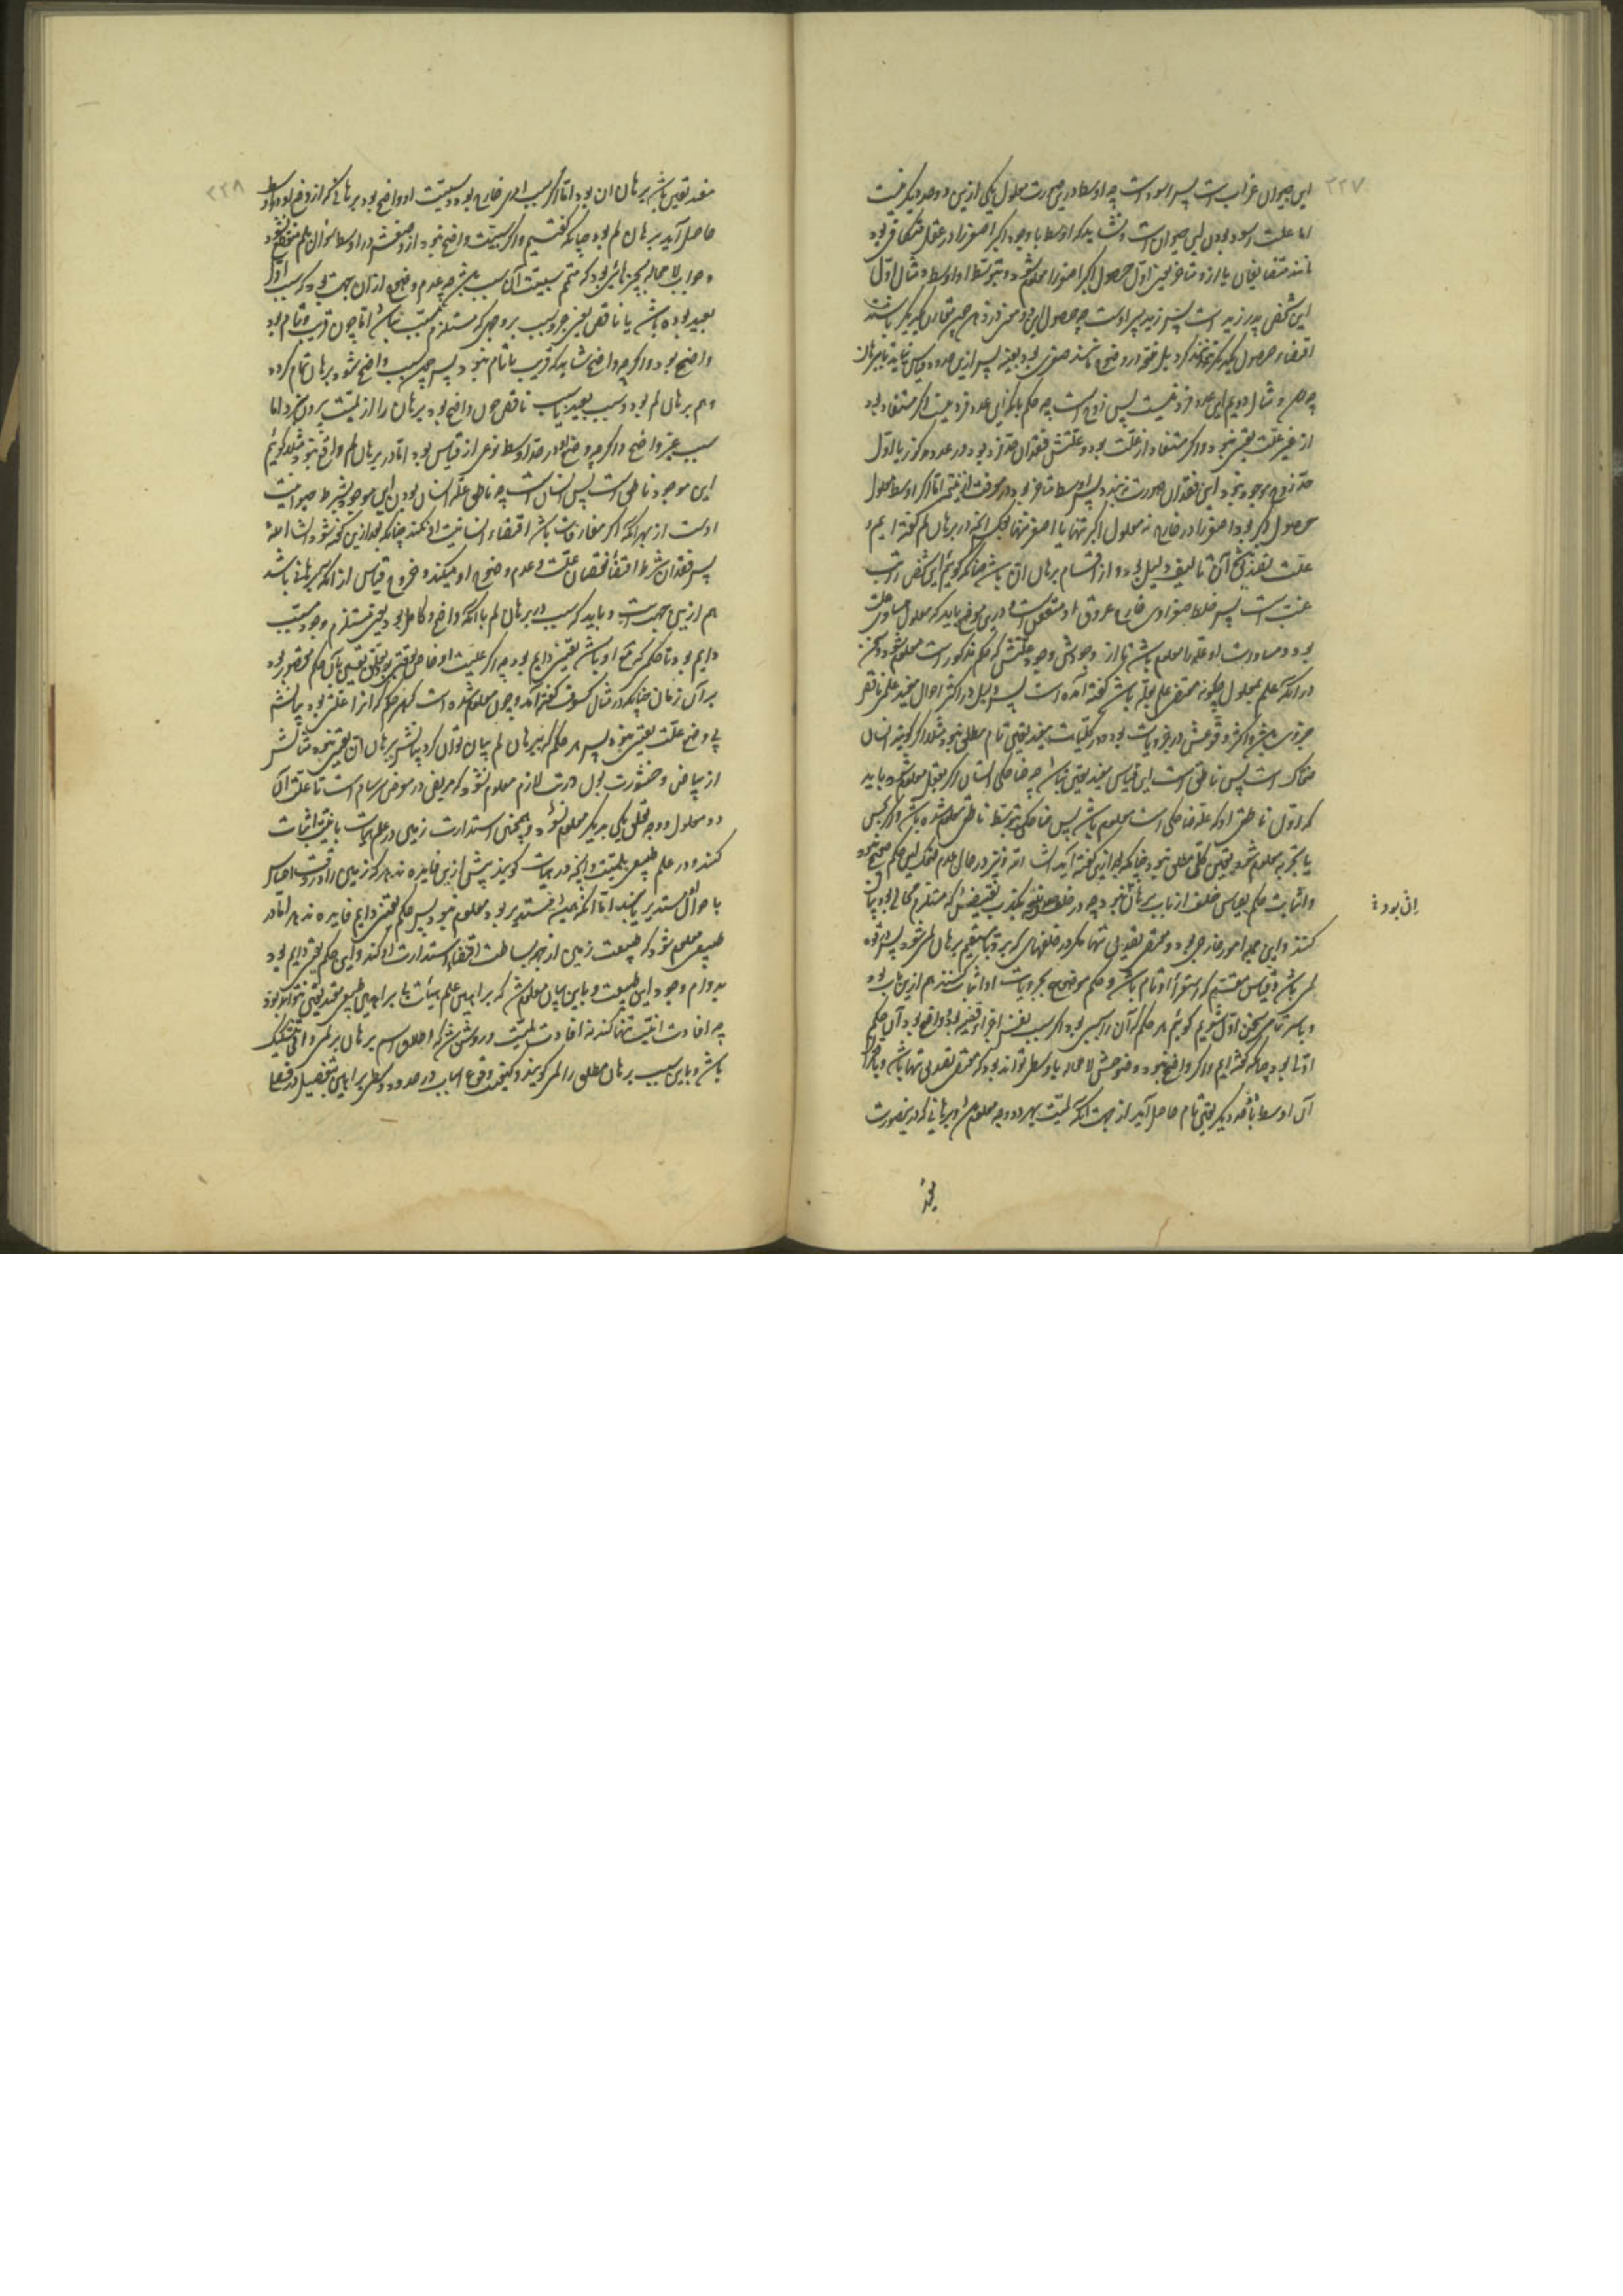 ۲۲۷
این حیوان غراب است پس اسود است چه اوسط درین صورت معلول یکی ازین دو حد دیگر نیست
اما علت اسود بودن این حیوان است و نشاید که اوسط با وجود اکبر اصغر را در عقل متکافی بود
مانند متضایفان یا ازو متاخر یعنی اول حصول اکبر اصغر را معلوم شود و بتوسط او اوسط و مثال اول
این شخص پدر زید است پس زید پسر اوست چه حصول این دو معنی
اقتضاء حصول یکدیگر نتواند کرد بل خود در وضوح مانند صغری بود بعینه پس ازین حدود قیاس نیاید تا ببرهان
چه رسد و مثال دویم این عدد فرد نیست پس زوج است چه حکم بانکه این عدد فرد نیست اگر مستفاد بود
از غیر علت یقینی نبود و اگر مستفاد از علت بود و علتش فقدان حد فرد بود در عدد مذکور یا اول
حد زوج موجود نبود این فقدان صورت نبندد پس اوسط متاخر بود در معرفت از نتیجه اما اگر اوسط معلول
حصول اکبر بود اصغر را در خارج نه معلول اکبر تنها یا اصغر تنها چنانکه در برهان لم گفته ایم و
علت تصدیق آن تالیف دلیل بود و از اقسام برهان ان باشد چنانکه گوئیم این شخص را تب
غب است پس خلط صفراوی خارج عروق او متعفن است و درین موضع باید که معلول مساوی علت
بود و مساوات او علت را معلوم باشد تا از وجودش وجود علتش که حکم مذکور است معلوم شود و سخن
در آنکه علم بمعلول چگونه مقتضی علم بعلت باشد گفته آمده است پس دلیل در اکثر احوال مفید علمی ناقص
جزوی باشد و اکثر وقوعش در جزویات بود و در کلیات مفید یقینی تام مطلق نبود مثلا اگر گویند انسان
ضحاک است پس ناطق است این قیاس مفید یقین نباشد چه ضاحکی انسان اگر بعقل معلوم شود باید
که اول ناطقی او که علت ضاحکی است معلوم باشد پس ضاحکی بتوسط ناطقی معلوم شده باشد و اگر بحس
یا تجربه معلوم شود یقین کلی مطلق نبود چنانکه بعد ازین گفته آید ان شاء الله و نیز در حال عدم ضحک این حکم صحیح نبود
و اثبات حکم بقیاس خلف از باب برهان ان بود چه در خلف تصحیح نتیجه بتکذیب نقیضش که مستلزم محالی بود بیان
کنند و این جمله امور خارجی بود و مقتضی تصدیق تنها مگر در خلفهای که برد با مستقیم برهان لمی شود پس بقوه
لمی باشد و قیاس مقسم که استقراء او تام باشد و حکم موضوع بجزویات او اثبات کنند هم ازین باب بود
و با سر سخن اول شویم گوئیم هر حکم که آن را سببی بود اگر سبب نفس اجزاء قضیه بود و واضح بود آن حکم
اولی بود چنانکه گفته ایم و اگر واضح نبود وضوحش لا محاله باوسطی تواند بود که مقتضی تصدیق تنها باشد و باقتران
آن اوسط با حد دیگر یقینی تام حاصل آید از جهت آنکه لمیت بهر دو وجه معلوم باشد و برهانی که درین صورت
ان بود
مفید
۲۲۸
مفید یقین باشد برهان ان بود اما اگر سبب امری خارج بود و سببیت او واضح بود برهانی که از وضع او در اوسط
حاصل آید برهان لم بود چنانکه گفتیم و اگر سببیت واضح نبود از وضعش در اوسط سوال بلم منقطع نشود
و جواب لا محاله بچیزی باشد که متمم سببیت آن سبب باشد چه عدم وضوح ازان جهت بود که سبب اول
بعید بوده باشد یا ناقص یعنی جزو سبب بر وجهی که مستلزم مسبب نباشد اما چون قریب و تام بود
واضح بود و اگرچه واضح شاید که قریب یا تام نبود پس چون سبب واضح شود برهان تمام گردد
و هم برهان لم بود و سبب بعید یا سبب ناقص چون واضح بود برهان را از لمیت بیرون نبرد اما
سبب غیر واضح و اگرچه وضع او در حد اوسط نوعی از قیاس بود اما در برهان لم واقع نبود مثلا گوئیم
این موجود ناطق است پس انسان است چه ناطق علت انسان بودن این موجود بشرط حیوانیت
اوست از بهر آنکه اگر مفارقات باشد اقتضاء انسانیت او نکند چنانکه بعد ازین گفته شود ان شاء الله
پس فقدان شرط اقتضاء نقصان علت و عدم وضوح او میکند و خروج قیاس از آنکه برهانی باشد
هم ازین جهت است و باید که سبب در برهان لم با آنکه واضح و کامل بود یعنی مستلزم وجود مسبب
دایم بود تا حکم که تابع او باشد یقینی دایم بود چه اگر علیت او خاص بوقتی بود تعلق یقین بآن حکم مقصور بود
بر آن زمان چنانکه در مثال کسوف گفته آمد و چون معلوم شده است که هر حکم که آنرا علتی بود بیانش
بی وضع علت یقینی نبود پس هر حکم که ببرهان لم بیان توان کرد بیانش ببرهان ان یقینی نبود مثالش
از بیاض و خثورت بول در تب لازم معلوم نشود که مریض در معرض سرسام است تا علت آن
دو معلول و وجه تعلق یکی بدیگر معلوم نشود و همچنین استدارت زمین در علم هیأت بانیت اثبات
کنند و در علم طبیعی بلمیت و آنچه در هیأت گویند پیش ازین فایده ندهد که زمین را در وقت احساس
باحوال او مستدیر یابند اما آنکه همیشه مستدیر بود معلوم نبود پس حکم یقینی دایم فایده ندهد اما در
طبیعی معلوم شود که طبیعت زمین از جهت بساطت اقتضاء استدارت او کند و این حکم یقینی دایم بود
بدوام وجود این طبیعت و باین بیان معلوم شد که براهین علم هیأت بی براهین طبیعی مفید یقینی نتواند بود
چه افادت انیت تنها کند نه افادت لمیت و روشن شد که اطلاق اسم برهان بر لمی و انی بتشکیک
باشد و باین سبب برهان مطلق را لمی گویند و کیفیت وقوع اسباب در حدود وسطی براهین بتفصیل